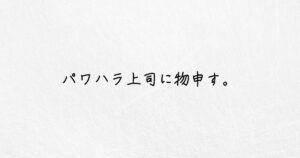 パワハラ上司に物申す。